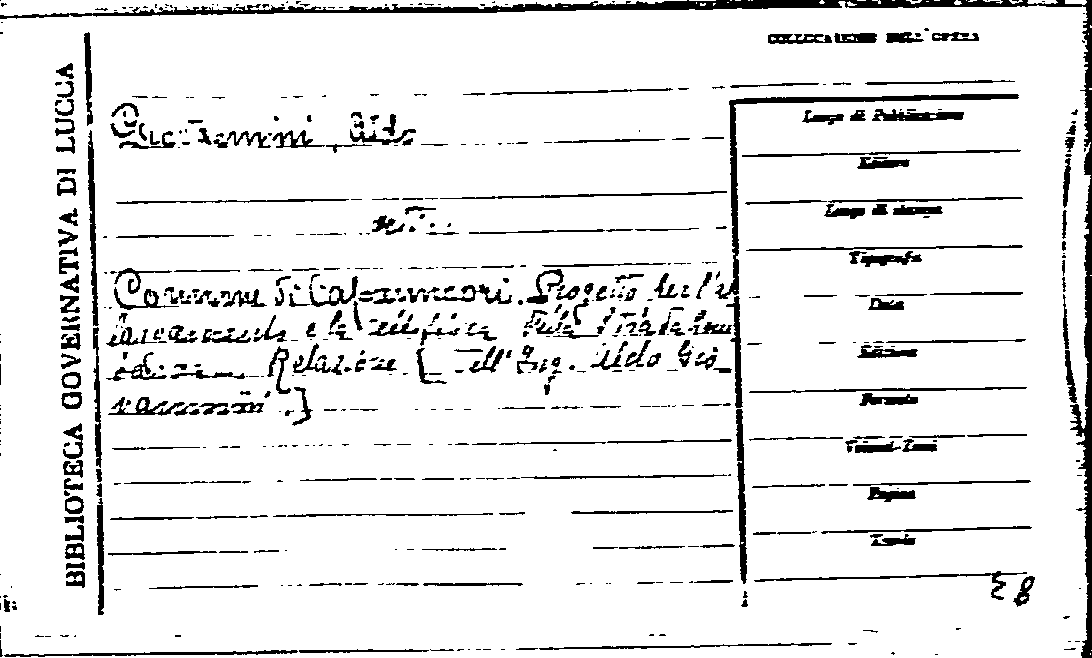 COLLOCAZIONE DELL'OPERA
BIBLIOTECA GOVERNATIVA DI LUCCA
Giovannini, Aldo
Comune di Capannori. Progetto per l'al
e la rettifica della strada
Relazione [dell'Ing. Aldo Gio
vannini.]
Luogo di Pubblicazione
Editore
Luogo di stampa
Tipografia
Data
Edizione
Formato
Volumi-Tomi
Pagine
Tavole